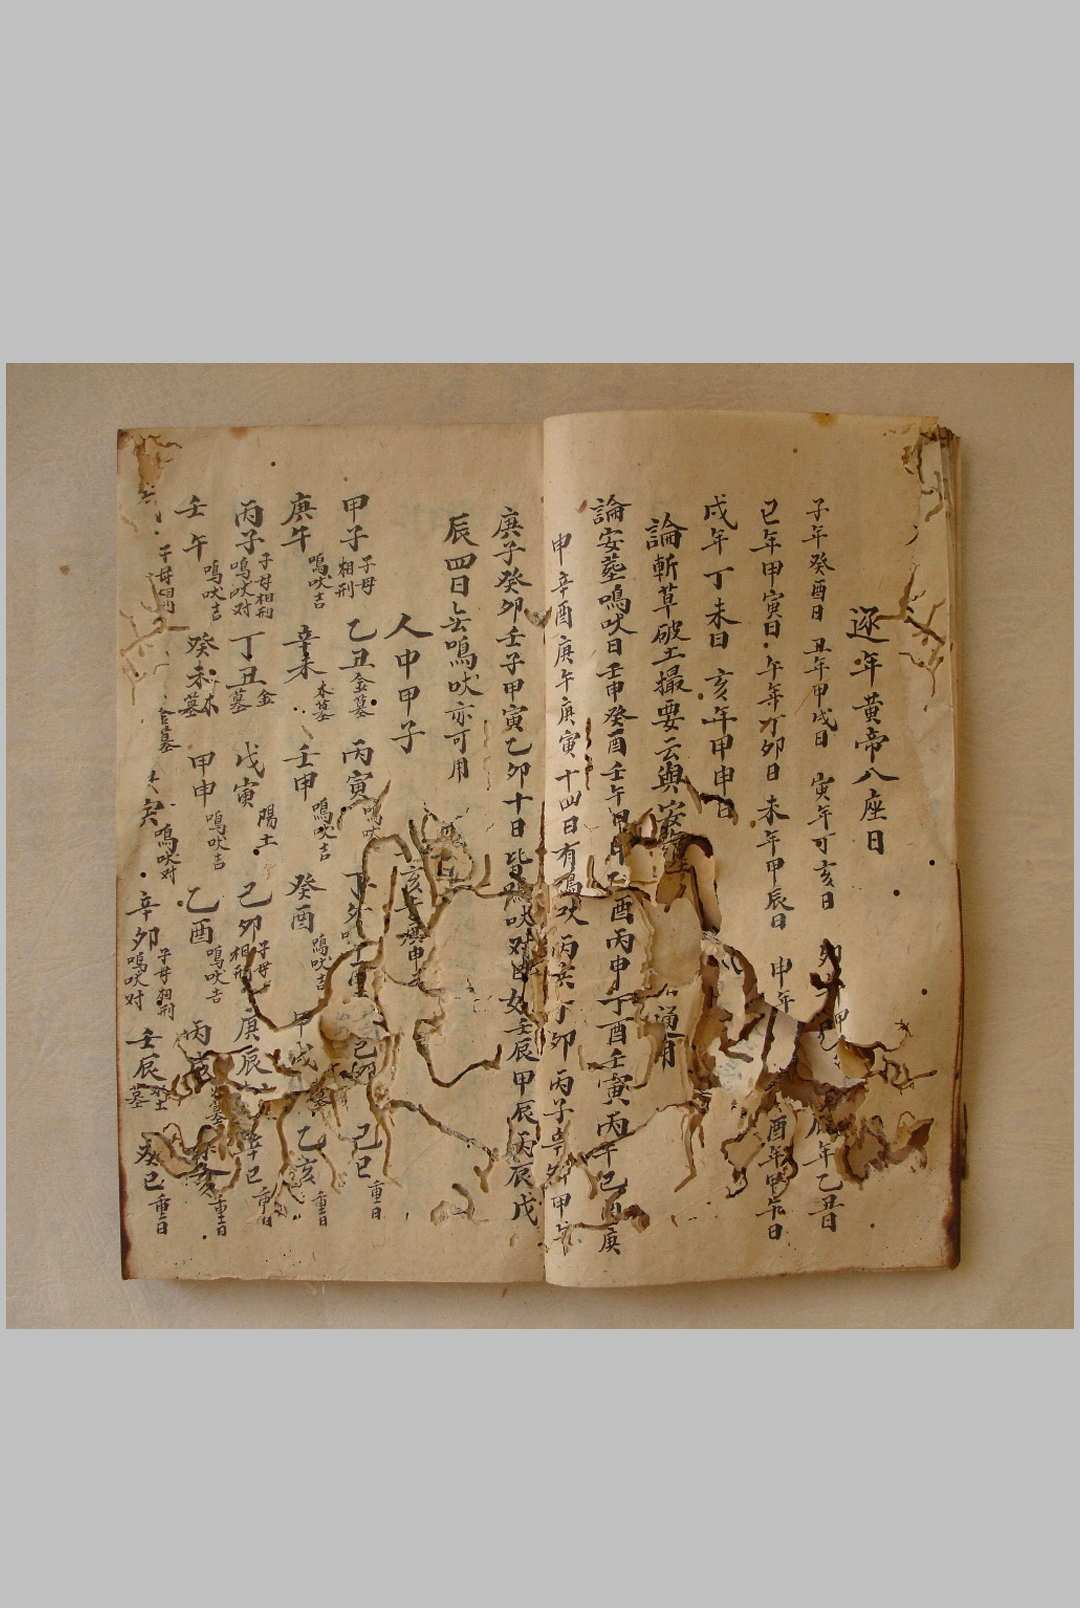 逐年黄帝八座日
子年癸酉日 丑年甲戌日 寅年丁亥日 卯年甲 辰年乙丑日
巳年甲寅日 午年丁卯日 未年甲辰日 申年 酉年甲午日
戌年丁未日 亥年甲申日
論斬草破土撮要云與安 通用
論安葬鳴吠日壬申癸酉壬午甲申乙酉丙申丁酉壬寅丙午己酉庚
申辛酉庚午庚寅十四日有鳴吠丙寅丁卯丙子辛卯甲午
庚子癸卯壬子甲寅乙卯十日皆鳴吠对日 壬辰甲辰丙辰戊
辰四日雖鳴吠亦可用
人中甲子
甲子 子母相刑 乙丑 金墓 丙寅 丁卯 己巳 重日
庚午 鳴吠吉 辛未 木墓 壬申 鳴吠吉 癸酉 鳴吠吉 甲戌 乙亥 重日
丙子 子母相刑 鳴吠对 丁丑 金墓 戊寅 陽土 己卯 子母相刑 庚辰 辛巳 重日
壬午 鳴吠吉 癸未 木墓 甲申 鳴吠吉 乙酉 鳴吠吉 丙戌 重日
子母相刑 金墓 寅 鳴吠对 辛卯 子母相刑 鳴吠对 壬辰 水土墓 癸巳 重日